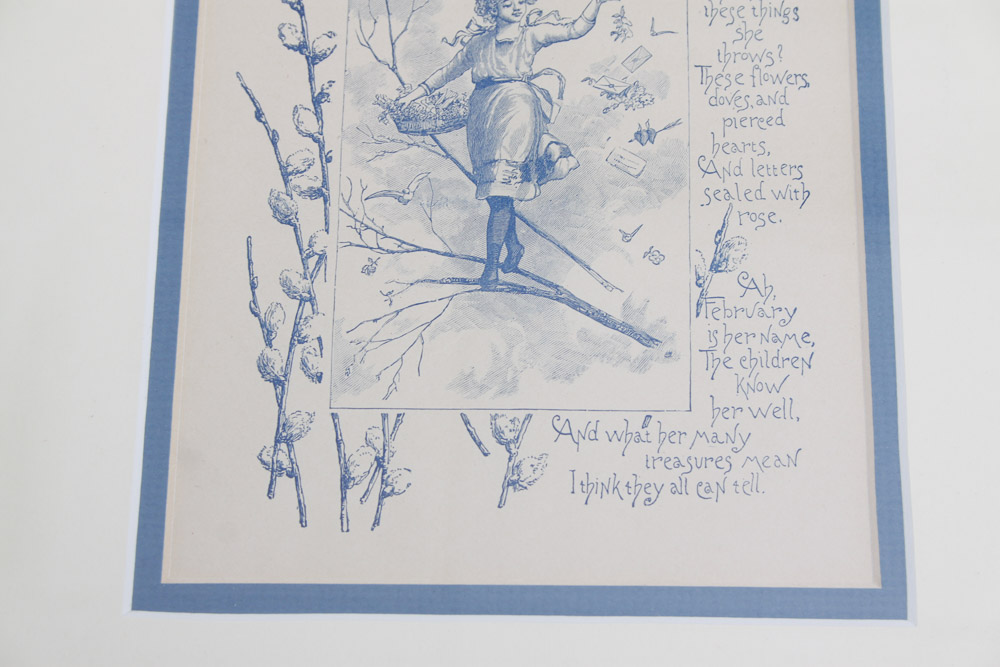 these things
she
throws?
These flowers,
doves, and
pierced
hearts,
And letters
sealed with
rose.
Ah,
February
is her name,
The children
know
her well,
And what her many
treasures mean
I think they all can tell.